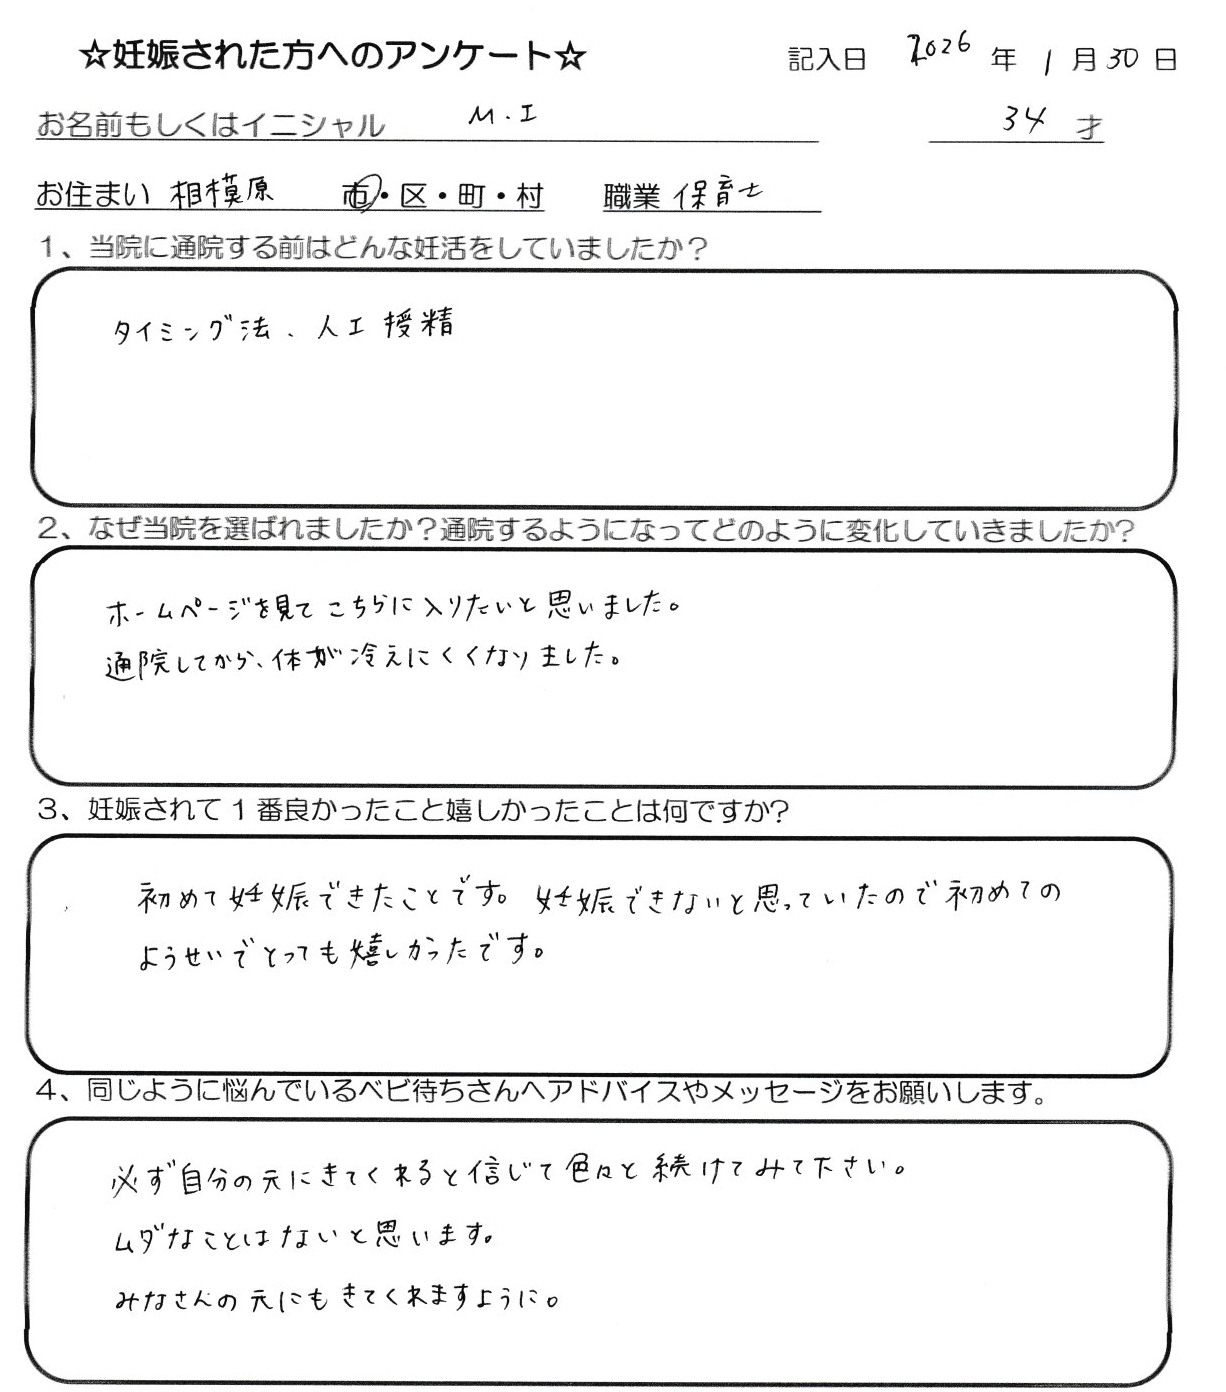 ☆妊娠された方へのアンケート☆ 記入日 2026 年 1 月 30 日
お名前もしくはイニシャル M.I 34 才
お住まい 相模原 市・区・町・村 職業 保育士
1、当院に通院する前はどんな妊活をしていましたか？
タイミング法、人工授精
2、なぜ当院を選ばれましたか？通院するようになってどのように変化していきましたか?
ホームページを見てこちらに入りたいと思いました。
通院してから、体が冷えにくくなりました。
3、妊娠されて1番良かったこと嬉しかったことは何ですか?
初めて妊娠できたことです。妊娠できないと思っていたので初めての
ようせいでとっても嬉しかったです。
4、同じように悩んでいるベビ待ちさんへアドバイスやメッセージをお願いします。
必ず自分の元にきてくれると信じて色々と続けてみて下さい。
ムダなことはないと思います。
みなさんの元にもきてくれますように。